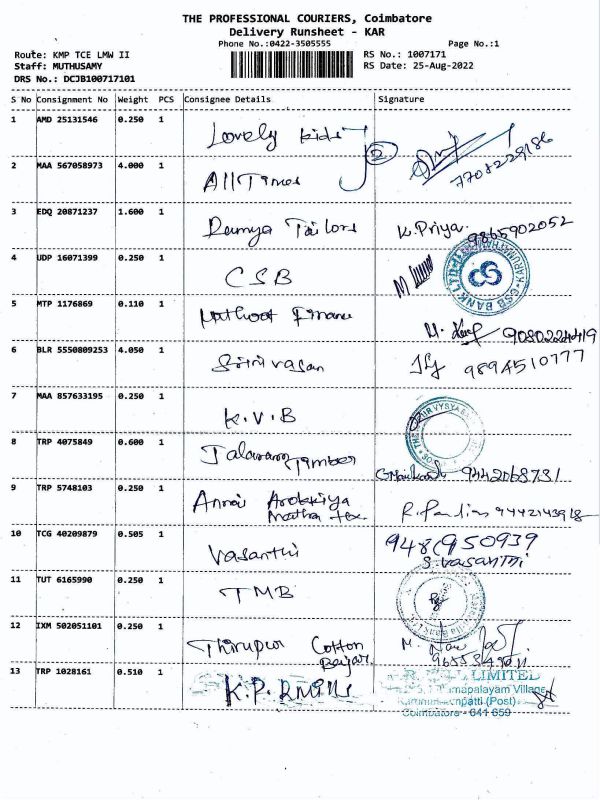 THE PROFESSIONAL COURIERS, Coimbatore
Delivery Runsheet - KAR
Phone No.:0422-3505555 Page No.:1
Route: KMP TCE LMW II RS No.: 1007171
Staff: MUTHUSAMY RS Date: 25-Aug-2022
DRS No.: DCJB100717101
S No Consignment No Weight PCS Consignee Details Signature
1 AMD 25131546 0.250 1 Lovely Kids 2 7708229186
2 MAA 567058973 4.000 1 All Times
3 EDQ 20871237 1.600 1 Ramya Tailors K.Priya. 9865902052
4 UDP 16071399 0.250 1 CSB CSB BANK LTD
5 MTP 1176869 0.110 1 Muthoot Finance 9080224419
6 BLR 5550809253 4.050 1 Srinivasan 9894510777
7 MAA 857633195 0.250 1 K.V.B
8 TRP 4075849 0.600 1 Jalaram Timber 9442068731
9 TRP 5748103 0.250 1 Annai Arokkiya Matha Tex R.Pandian 9442143918
10 TCG 40209879 0.505 1 Vasanthi 948(950939
S.Vasanthi
11 TUT 6165990 0.250 1 TMB
12 IXM 502051101 0.250 1 Thirupur Cotton Bajar
13 TRP 1028161 0.510 1 K.P.R Mills LIMITED
Village
(Post)
Coimbatore - 641 659